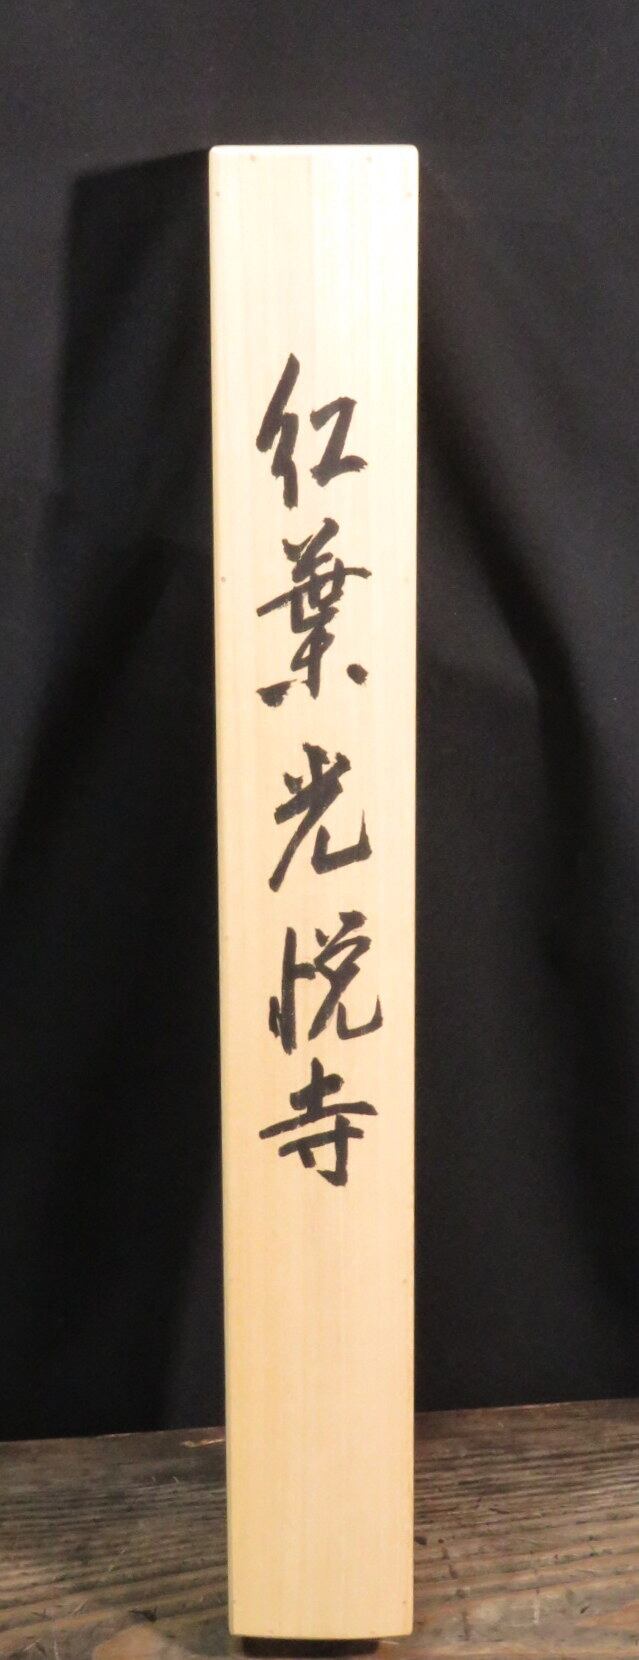 紅葉光悦寺